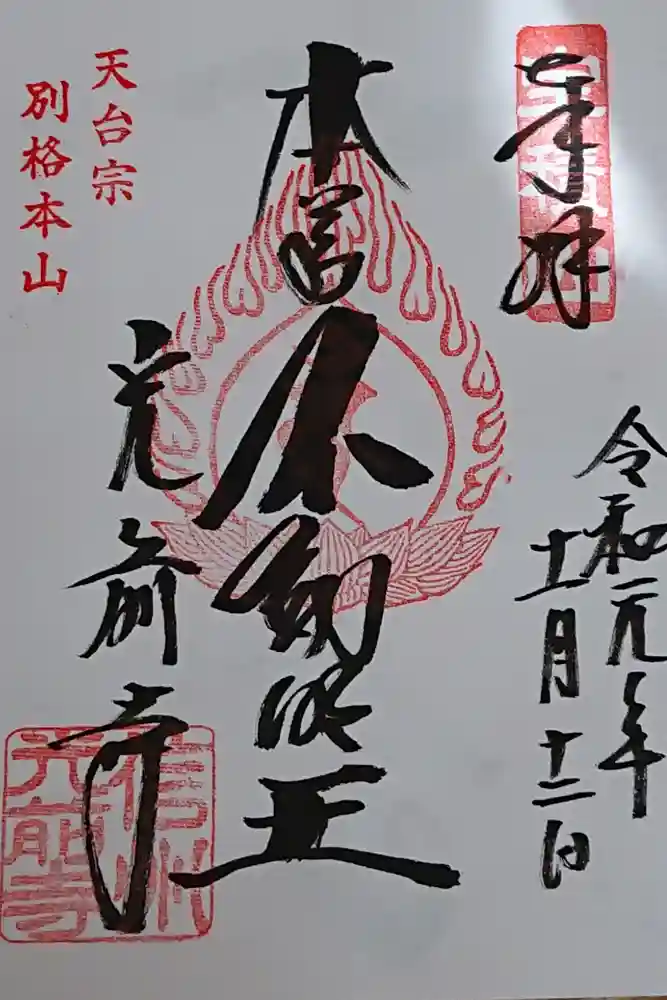 奉拝
寳積山
令和元年
十一月十二日
本尊
不動明王
光前寺
信州
光前寺
天台宗
別格本山